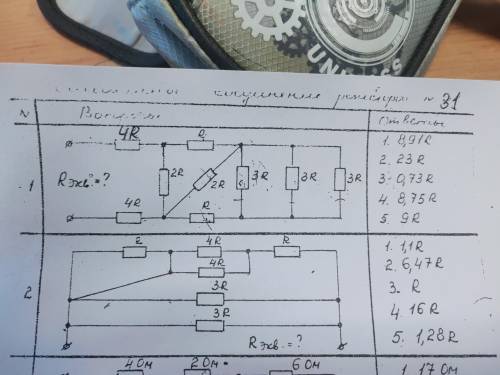 соединения № 31
N Вопросы Ответы
1
4R R
Rэкв.=?
2R 2R 3R 3R 3R
4R R
1. 8,91R
2. 23R
3. 0,73R
4. 8,75R
5. 9R
2
R 4R R
4R
3R
3R
Rэкв.=?
1. 1,1R
2. 6,47R
3. R
4. 16R
5. 1,28R
4 Ом 2 Ом 6 Ом
1. 17 Ом